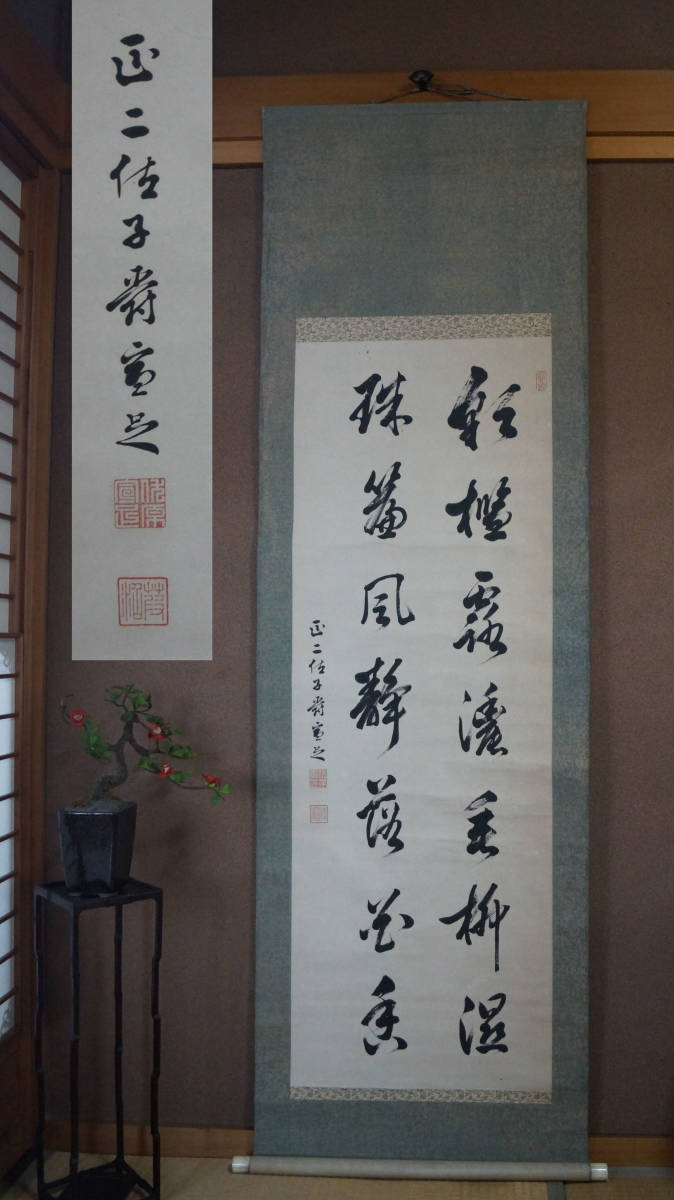 彩檻露濃垂柳湿
珠簾風静落花香
正二位子爵宣足
正二位子爵宣足